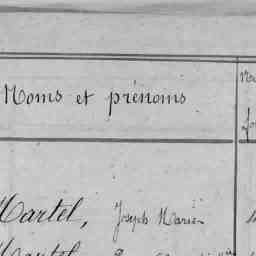 Noms et prénoms
Martel, Joseph Marie
Martel